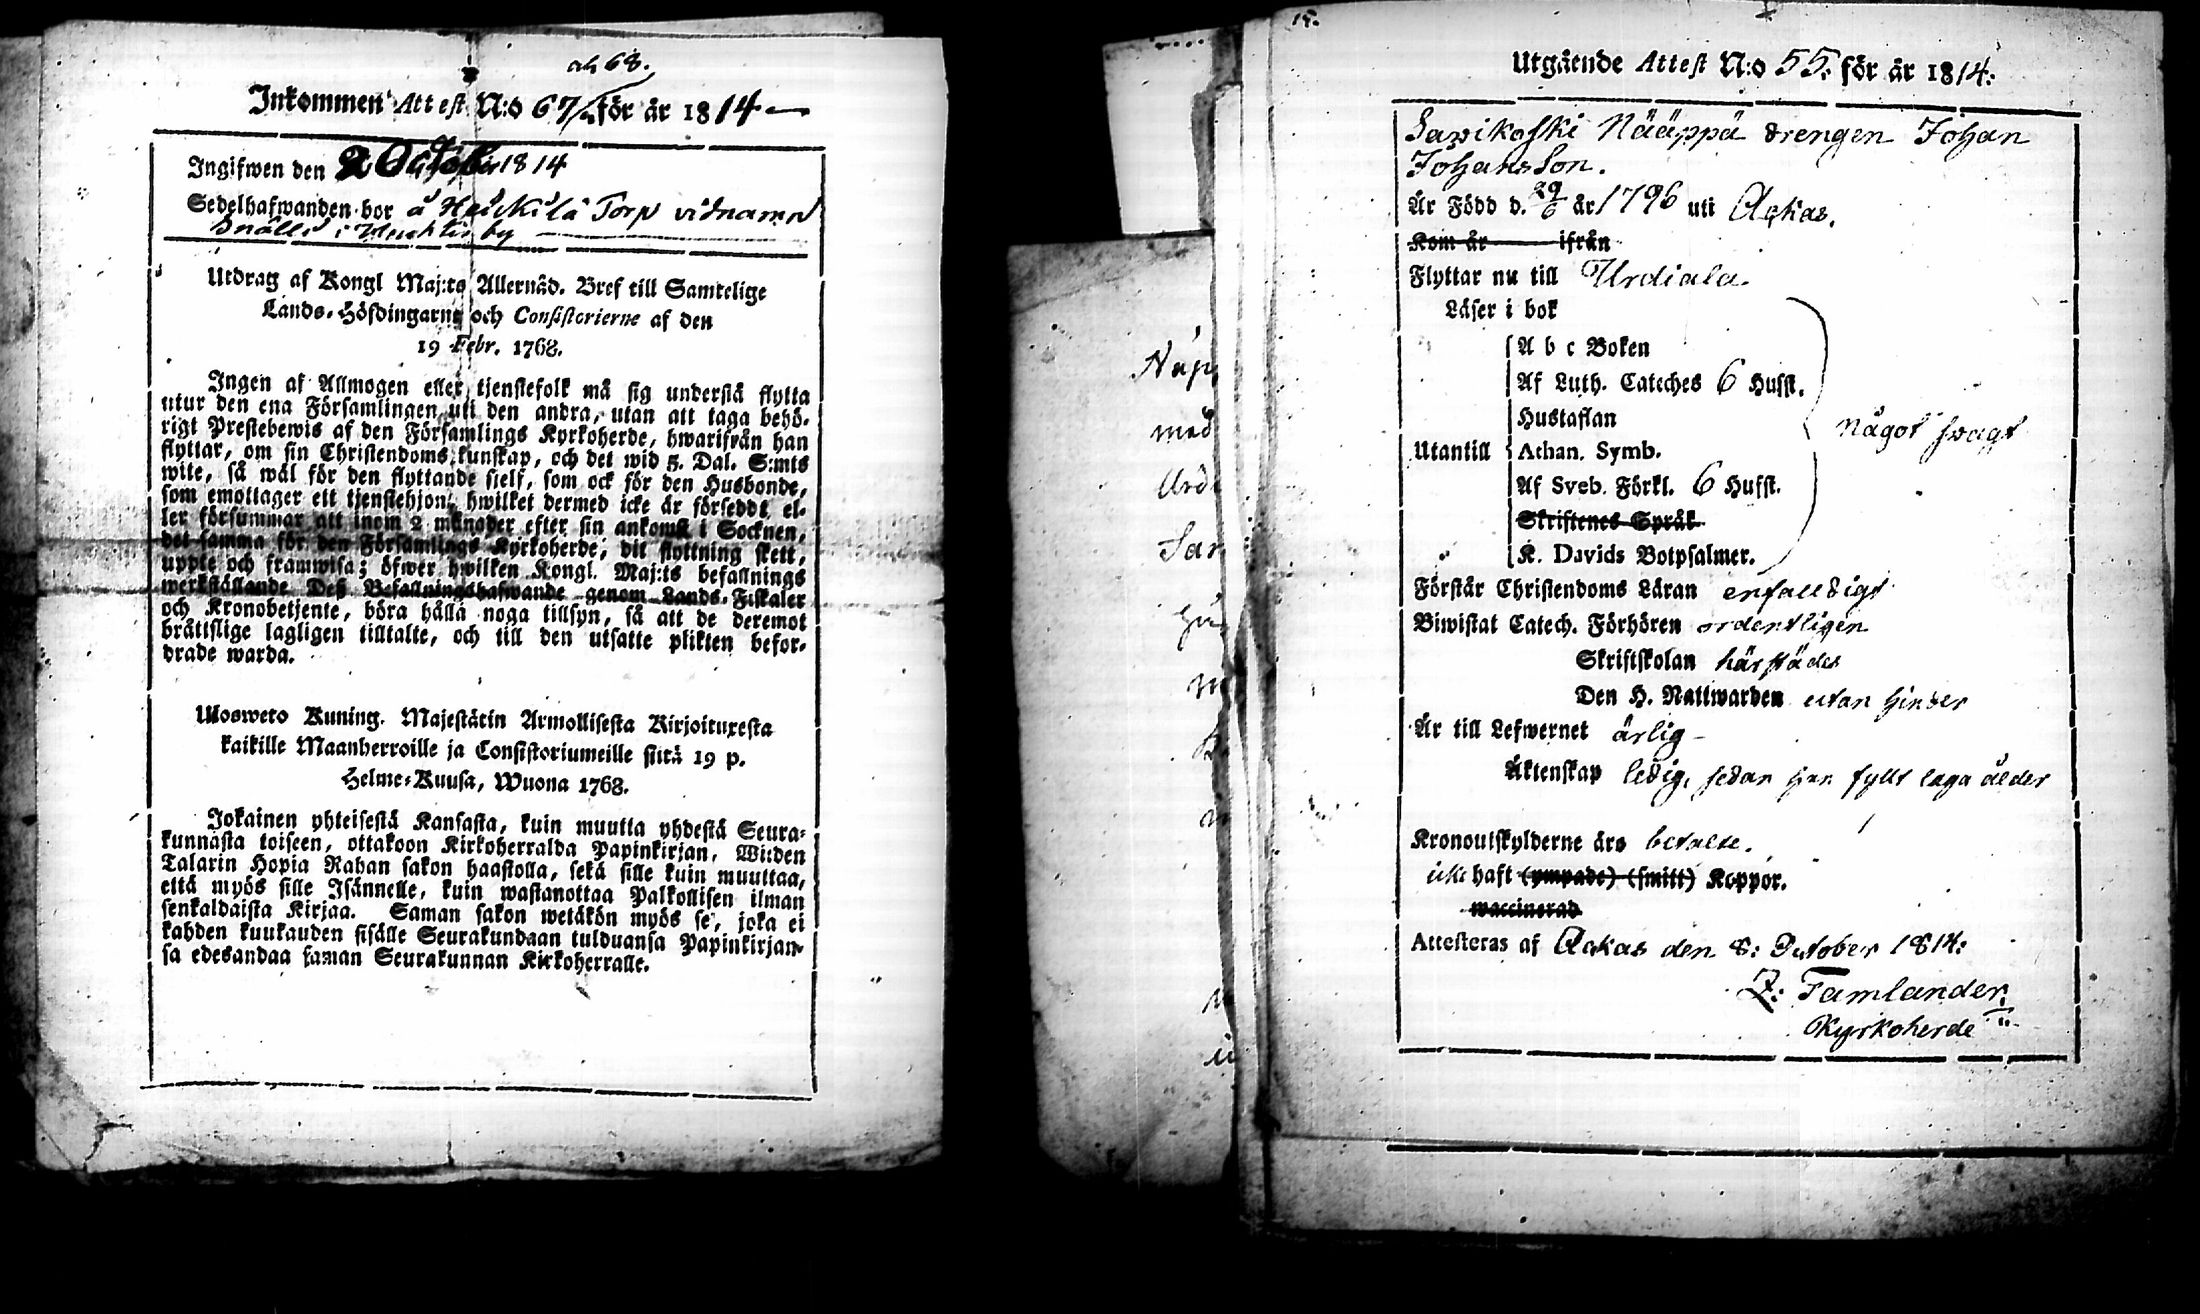 och 68.
Inkommen Attest N:o 67 för år 1814
Ingifwen den 2 October 1814
Sedelhafwanden bor å Heickilä Torp vidnamn
Snälls i by
Utdrag af Kongl Maj:ts Allernåd. Bref till Samtelige
Lands-Höfdingarne och Consistorierne af den
19 Febr. 1768.
Ingen af Allmogen eller tjenstefolk må sig understå flytta
utur den ena Församlingen uti den andra, utan att taga behö-
rigt Prestebewis af den Församlings Kyrkoherde, hwarifrån han
flyttar, om sin Christendoms kunskap, och det wid 5. Dal. S:mts
wite, så wäl för den flyttande sjelf, som ock för den Husbonde,
som emottager ett tjenstehjon, hwilket dermed icke är försedd, el-
ler försummar att inom 2 månader efter sin ankomst i Socknen,
det samma för den Församlings Kyrkoherde, dit flyttning skett,
uppte och framwisa; öfwer hwilken Kongl. Maj:ts befallnings
werkställande Deß Befallningshafwande genom Lands-Fiskaler
och Kronobetjente, böra hålla noga tillsyn, så att de deremot
bråttslige lagligen tilltalte, och till den utsatte plikten befor-
drade warda.
Ulosweto Kuning. Majestätin Armollisesta Kirjoituxesta
kaikille Maanherroille ja Consistoriumeille siitä 19 p.
Helme-Kuusa, Wuona 1768.
Jokainen yhteisestä Kansasta, kuin muutta yhdestä Seura-
kunnasta toiseen, ottakoon Kirkoherralda Papinkirjan, Wiiden
Talarin Hopia Rahan sakon haastolla, sekä sille kuin muuttaa,
että myös sille Isännelle, kuin wastanottaa Palkollisen ilman
senkaldaista Kirjaa. Saman sakon wetäkön myös se, joka ei
kahden kuukauden sisälle Seurakundaan tulduansa Papinkirjan-
sa edesandaa saman Seurakunnan Kirkoherralle.
Näp
med
Urd
San
15.
Utgående Attest N:o 55: för år 1814:
Savikoski Nääppä drengen Johan
Johansson.
Är Född d. 29/6 år 1796 uti Ackas.
Kom år ifrån
Flyttar nu till Urdiala.
Läser i bok
A b c Boken
Af Luth. Cateches 6 Husst.
Hustaflan
något swagt
Utantill Athan. Symb.
Af Sveb. Förkl. 6 Husst.
Skriftenes Språk
K. Davids Botpsalmer.
Förstår Christendoms Läran enfalldigt
Biwistat Catech. Förhören ordentligen
Skriftskolan härstädes
Den H. Nattwarden utan hinder
Är till Lefwernet ärlig
Äktenskap ledig, sedan han fyllt laga ålder
Kronoutskylderne äro betalte.
icke haft (ympade) (smitt) Koppor.
waccinerad
Attesteras af Ackas den 8: October 1814:
Z: Tamlander
Kyrkoherde